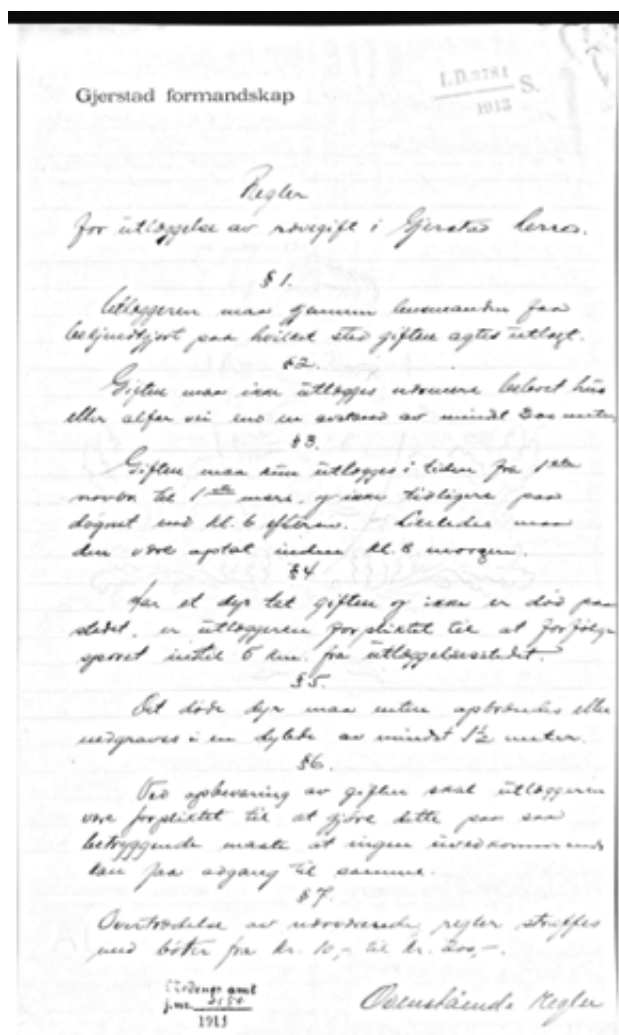 Gjerstad formandskap
I.D. 2781 S.
1913
Regler
for utlæggelse av rævegift i Gjerstad herred.
§ 1.
Utlæggeren maa gjennem lensmanden faa
bekjendtgjort paa hvilket sted giften agtes utlagt.
§2.
Giften maa ikke utlægges nærmere beboet hus
eller alfar vei end en avstand av mindst 300 meter
§3.
Giften maa kun utlægges i tiden fra 1ste
novbr. til 1ste mars, og ikke tidligere paa
døgnet end kl. 6 efterm. - Likeledes maa
den være optat inden kl. 8 morgen.
§4
Har et dyr tat giften og ikke er død paa
stedet, er utlæggeren forpliktet til at forfølge
sporet indtil 5 km. fra utlæggelsesstedet.
§5.
Det døde dyr maa enten opbrændes eller
nedgraves i en dybde av mindst 1½ meter.
§6.
Ved opbevaring av giften skal utlæggeren
være forpliktet til at gjøre dette paa saa
betryggende maate at ingen uvedkommende
kan faa adgang til samme.
§7.
Overtrædelse av nærværende regler straffes
med bøter fra kr. 10,- til kr. 200,-.
amt
j.nr.
1913
Ovenstående regler